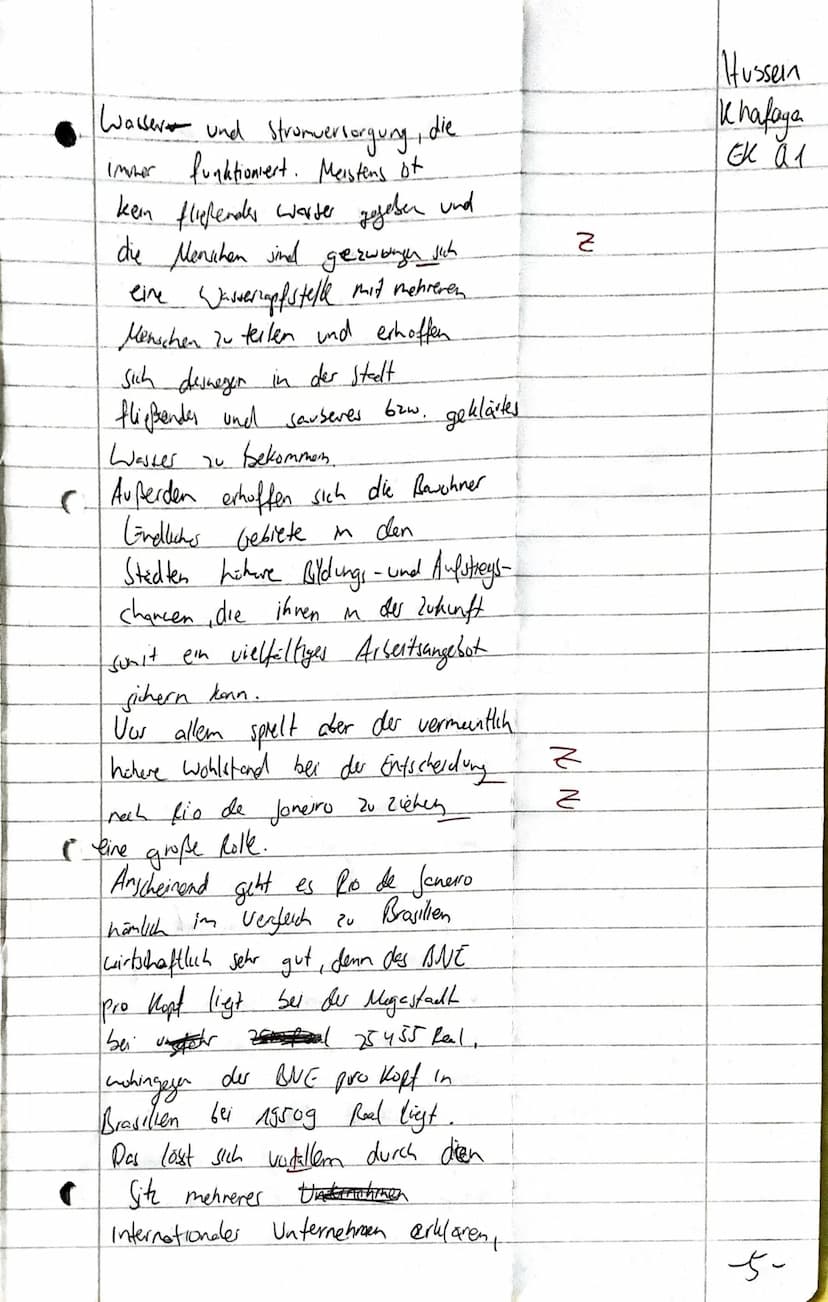 Hussein
Khafaga
EK Q1
Wasser- und Stromversorgung, die
immer funktioniert. Meistens ist
kein fließendes Wasser gegeben und
die Menschen sind gezwungen sich
Z
eine Wasserzapfstelle mit mehreren
Menschen zu teilen und erhoffen
sich deswegen in der Stadt
fließendes und sauberes bzw. geklärtes
Wasser zu bekommen.
Außerdem erhoffen sich die Bewohner
ländlicher Gebiete in den
Städten höhere Bildungs- und Aufstiegs-
chancen, die ihnen in der Zukunft
somit ein vielfältiges Arbeitsangebot
sichern kann.
Vor allem spielt aber der vermeintlich
höhere Wohlstand bei der Entscheidung
Z
nach Rio de Janeiro zu ziehen
Z
eine große Rolle.
Anscheinend geht es Rio de Janeiro
nämlich im Vergleich zu Brasilien
wirtschaftlich sehr gut, denn das BNE
pro Kopf liegt bei der Megastadt
bei 25455 Real,
wohingegen das BNE pro Kopf in
Brasilien bei 19509 Real liegt.
Das lässt sich vorallem durch den
Sitz mehrerer
Internationaler Unternehmen erklären,
-5-